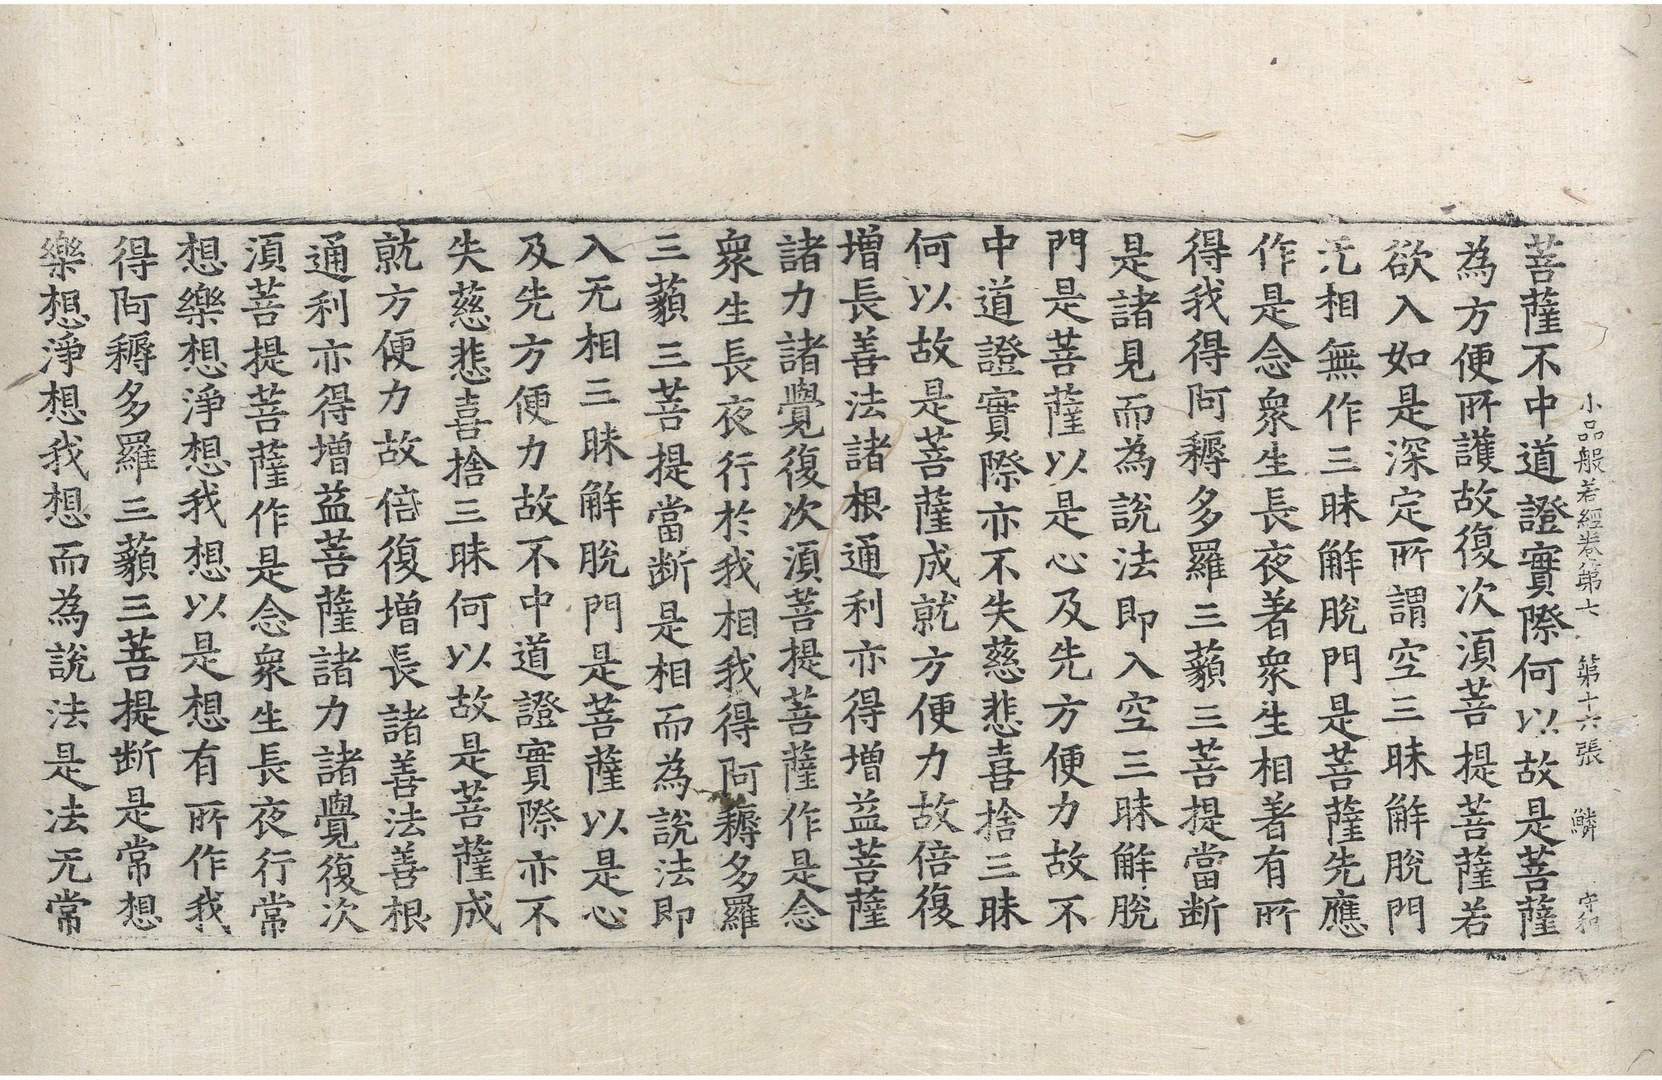 小品般若經卷第七　第十六張　鱗　守和
菩薩不中道證實際何以故是菩薩
為方便所護故復次湏菩提菩薩若
欲入如是深定所謂空三昧解脫門
无相無作三昧解脫門是菩薩先應
作是念衆生長夜著衆生相著有所
得我得阿耨多羅三藐三菩提當斷
是諸見而為說法即入空三昧解脫
門是菩薩以是心及先方便力故不
中道證實際亦不失慈悲喜捨三昧
何以故是菩薩成就方便力故倍復
增長善法諸根通利亦得增益菩薩
諸力諸覺復次湏菩提菩薩作是念
衆生長夜行於我相我得阿耨多羅
三藐三菩提當斷是相而為說法即
入无相三昧解脫門是菩薩以是心
及先方便力故不中道證實際亦不
失慈悲喜捨三昧何以故是菩薩成
就方便力故倍復增長諸善法善根
通利亦得增益菩薩諸力諸覺復次
湏菩提菩薩作是念衆生長夜行常
想樂想淨想我想以是想有所作我
得阿耨多羅三藐三菩提斷是常想
樂想淨想我想而為說法是法无常